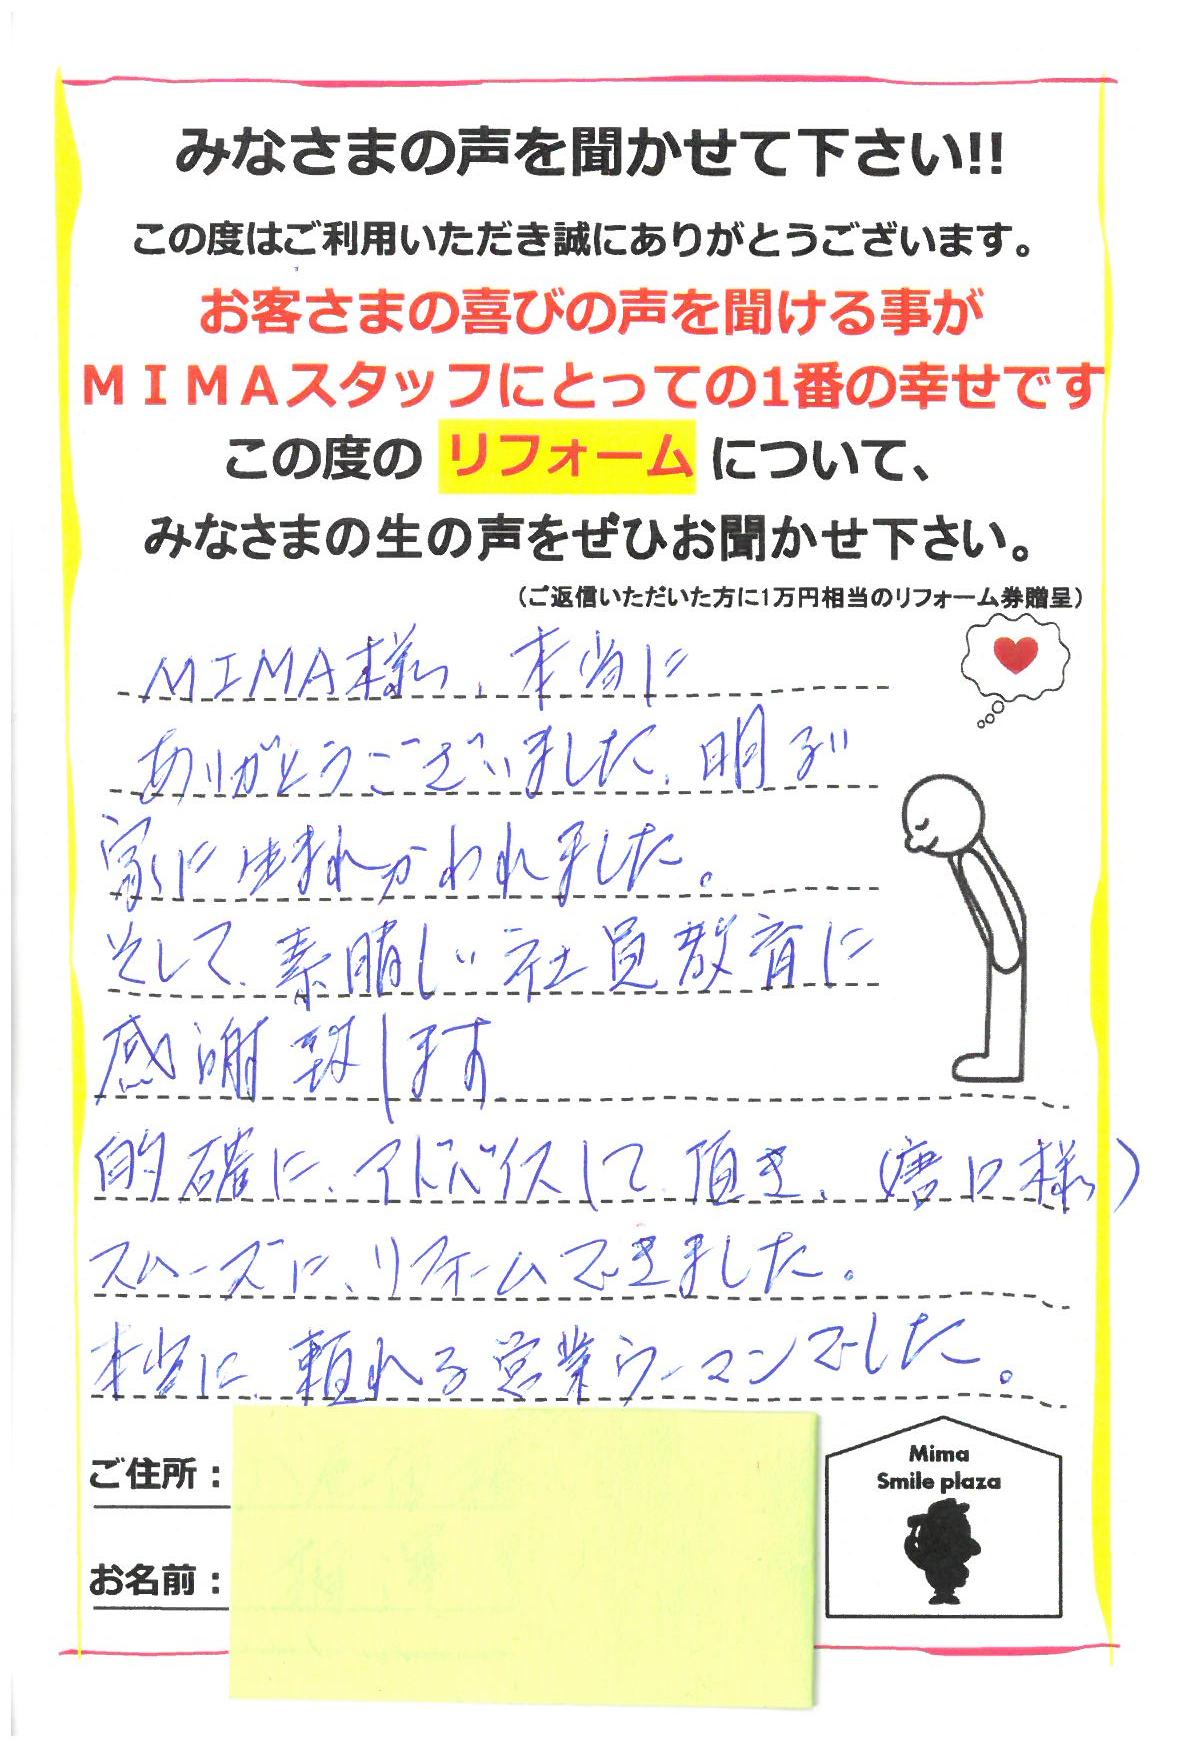 みなさまの声を聞かせて下さい!!
この度はご利用いただき誠にありがとうございます。
お客さまの喜びの声を聞ける事が
ＭＩＭＡスタッフにとっての1番の幸せです
この度の リフォーム について、
みなさまの生の声をぜひお聞かせ下さい。
（ご返信いただいた方に1万円相当のリフォーム券贈呈）
MIMA様、本当に
ありがとうございました、明るい
家に生まれかわれました。
そして、素晴しい社員教育に
感謝致します
的確に、アドバイスして頂き、（唐口様）
スムーズに、リフォームできました。
本当に、頼れる営業ウーマンでした。
ご住所：
お名前：
Mima
Smile plaza